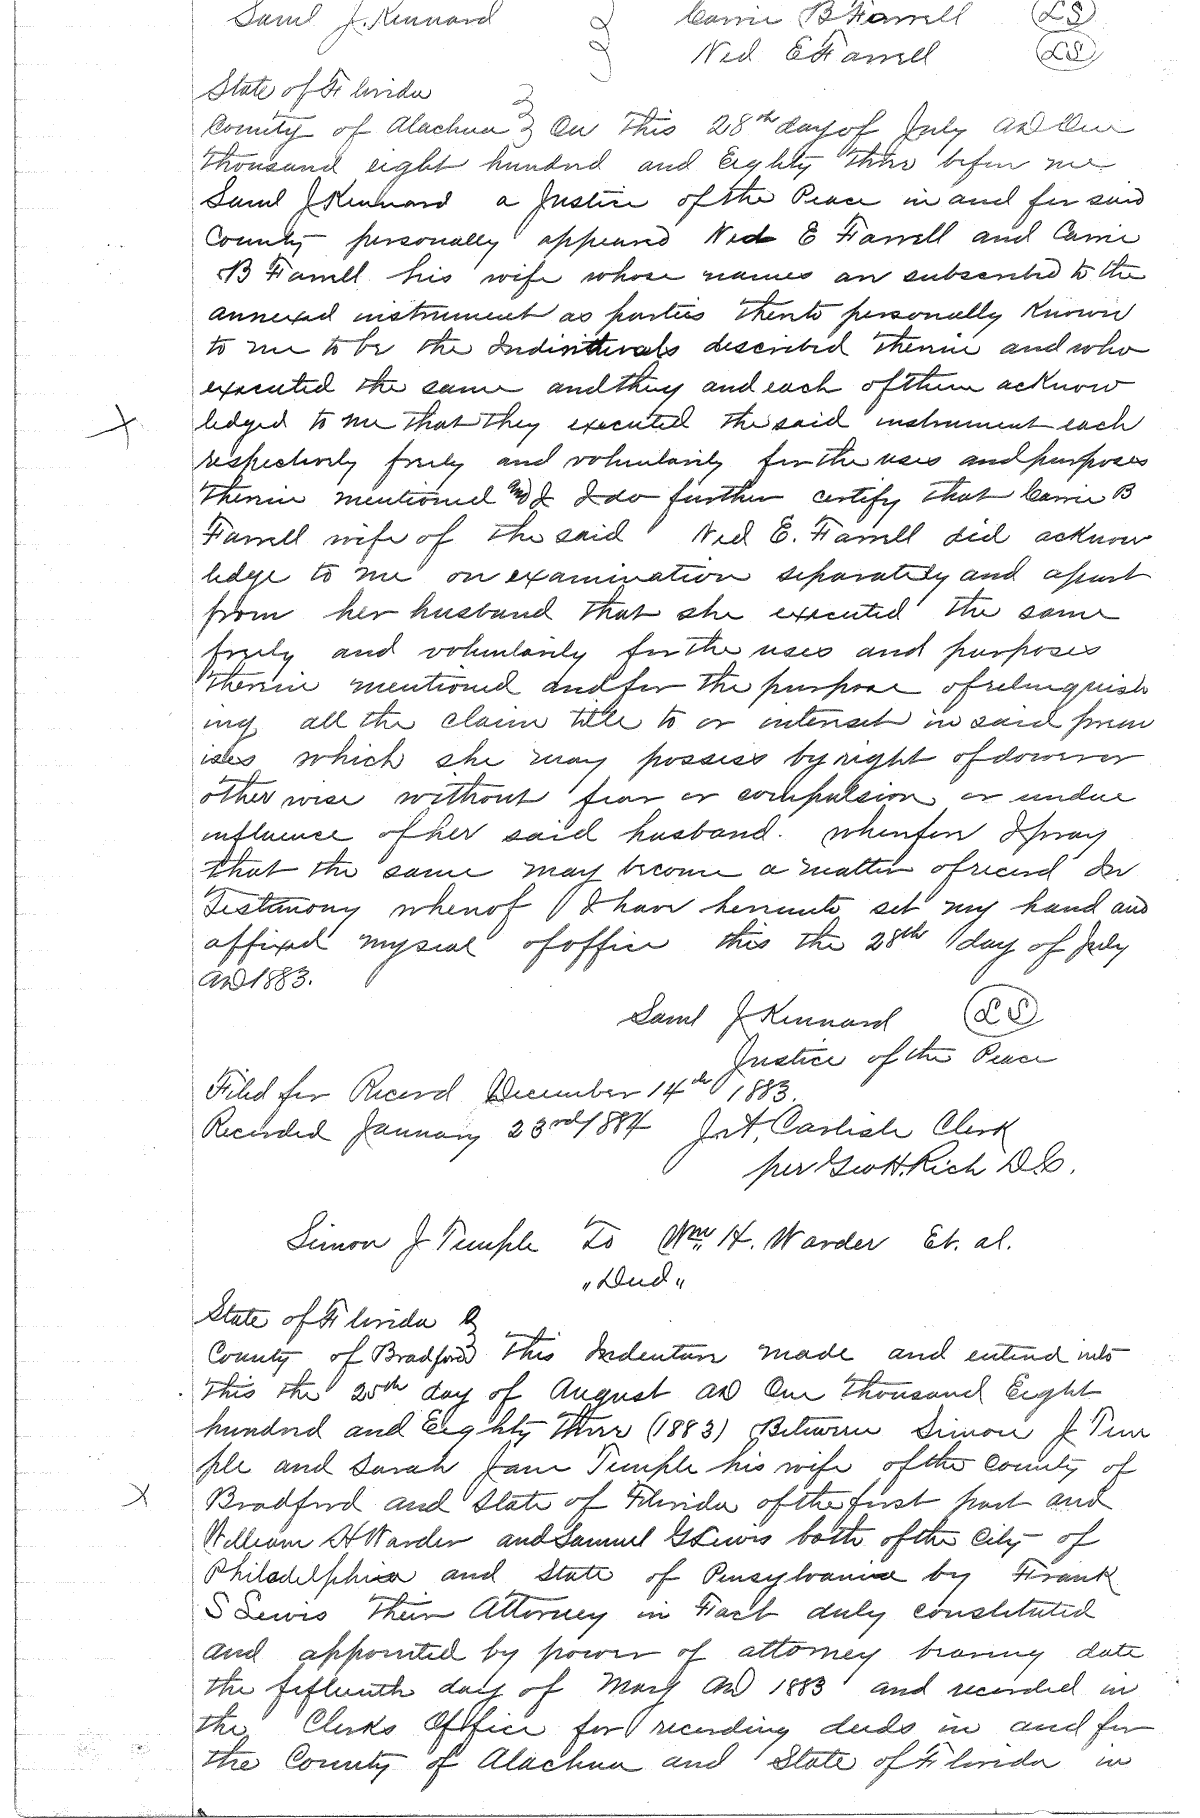 Saml J. Kennard } Carrie B Farrell (LS)
Ned E Farrell (LS)
State of Florida
County of Alachua } On this 28th day of July AD One
thousand eight hundred and Eighty three before me
Saml J Kennard a Justice of the Peace in and for said
County personally appeared Ned E Farrell and Carrie
B Farrell his wife whose names are subscribed to the
annexed instrument as parties thereto personally Known
to me to be the Individuals described therein and who
executed the same and they and each of them acKnow
ledged to me that they executed the said instrument each
respectively freely and voluntarily for the uses and purposes
therein mentioned And I do further certify that Carrie B
Farrell wife of the said Ned E. Farrell did acKnow
ledge to me on examination separately and apart
from her husband that she executed the same
freely and voluntarily for the uses and purposes
therein mentioned and for the purpose of relinquish
ing all the claim title to or interest in said prem
ises which she may possess by right of dower or
otherwise without fear or compulsion or undue
influence of her said husband. Wherefore I pray
that the same may become a matter of record In
Testimony whereof I have hereunto set my hand and
affixed my seal of office this the 28th day of July
AD 1883.
Saml J Kennard (LS)
Justice of the Peace
Filed for Record December 14th 1883.
Recorded January 23rd 1884 J. A. Carlisle Clerk
per Geo H. Rich D.C.
Simon J Temple To Wm H. Warder Et. al.
"Deed"
State of Florida }
County of Bradford } This Indenture made and entered into
this the 25th day of August AD One thousand Eight
hundred and Eighty three (1883) Between Simon J Tem
ple and Sarah Jane Temple his wife of the County of
Bradford and State of Florida of the first part and
William H Warder and Samuel G Lewis both of the City of
Philadelphia and State of Pensylvania by Frank
S Lewis their Attorney in Fact duly constituted
and appointed by power of attorney bearing date
the fifteenth day of May AD 1883 and recorded in
the Clerks Office for recording deeds in and for
the County of Alachua and State of Florida in